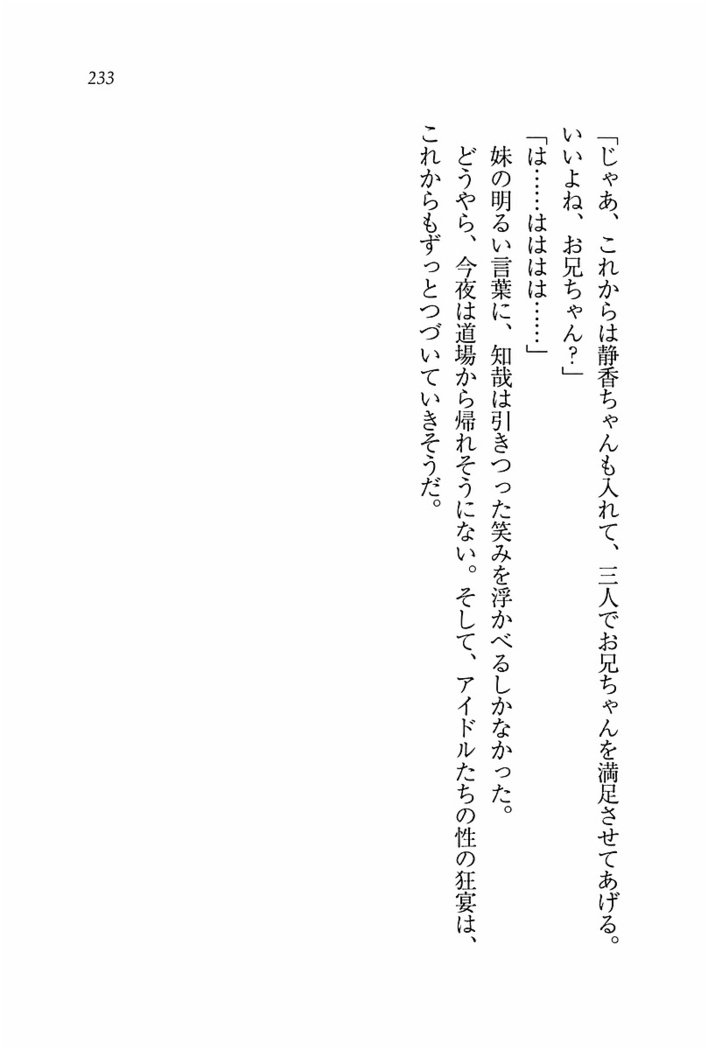 233
「じゃあ、これからは静香ちゃんも入れて、三人でお兄ちゃんを満足させてあげる。
いいよね、お兄ちゃん?」
「は……はははは……」
妹の明るい言葉に、知哉は引きつった笑みを浮かべるしかなかった。
どうやら、今夜は道場から帰れそうにない。そして、アイドルたちの性の狂宴は、
これからもずっとつづいていきそうだ。